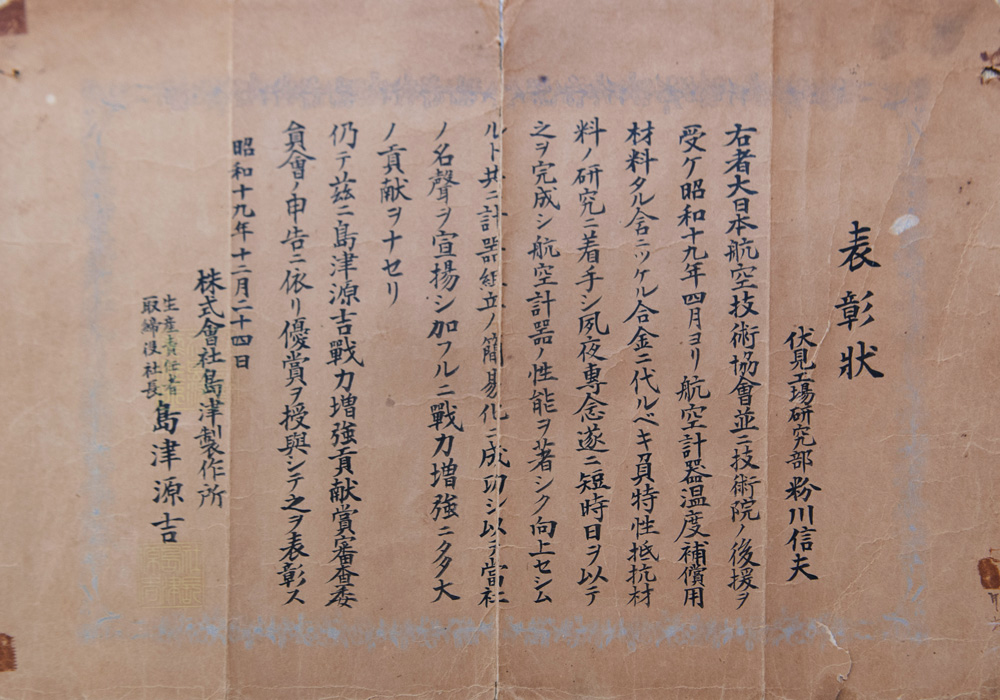 表彰狀
伏見工場研究部 粉川信夫
右者大日本航空技術協會並ニ技術院ノ後援ヲ
受ケ昭和十九年四月ヨリ航空計器温度補償用
材料タル含ニツケル合金ニ代ルベキ負特性抵抗材
料ノ研究ニ着手シ夙夜専念遂ニ短時日ヲ以テ
之ヲ完成シ航空計器ノ性能ヲ著シク向上セシム
ルト共ニ計器組立ノ簡易化ニ成功シ以テ當社
ノ名聲ヲ宣揚シ加フルニ戰力増強ニ多大
ノ貢献ヲナセリ
仍テ茲ニ島津源吉戰力増強貢献賞審査委
員會ノ申告ニ依リ優賞ヲ授與シテ之ヲ表彰ス
昭和十九年十二月二十四日
株式會社島津製作所
生産責任者
取締役社長 島津源吉